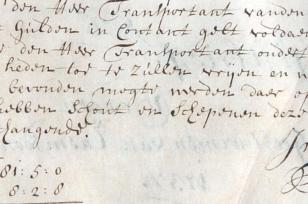 den Heer Transportant vanden
Gulden in Contant gelt voldaen
den Heer Transportant onder
hiden toe te zullen vrijen en
bevonden mogte werden daer
hebben Schout en Schepenen deze
hangende.
81:5:0
8:2:8